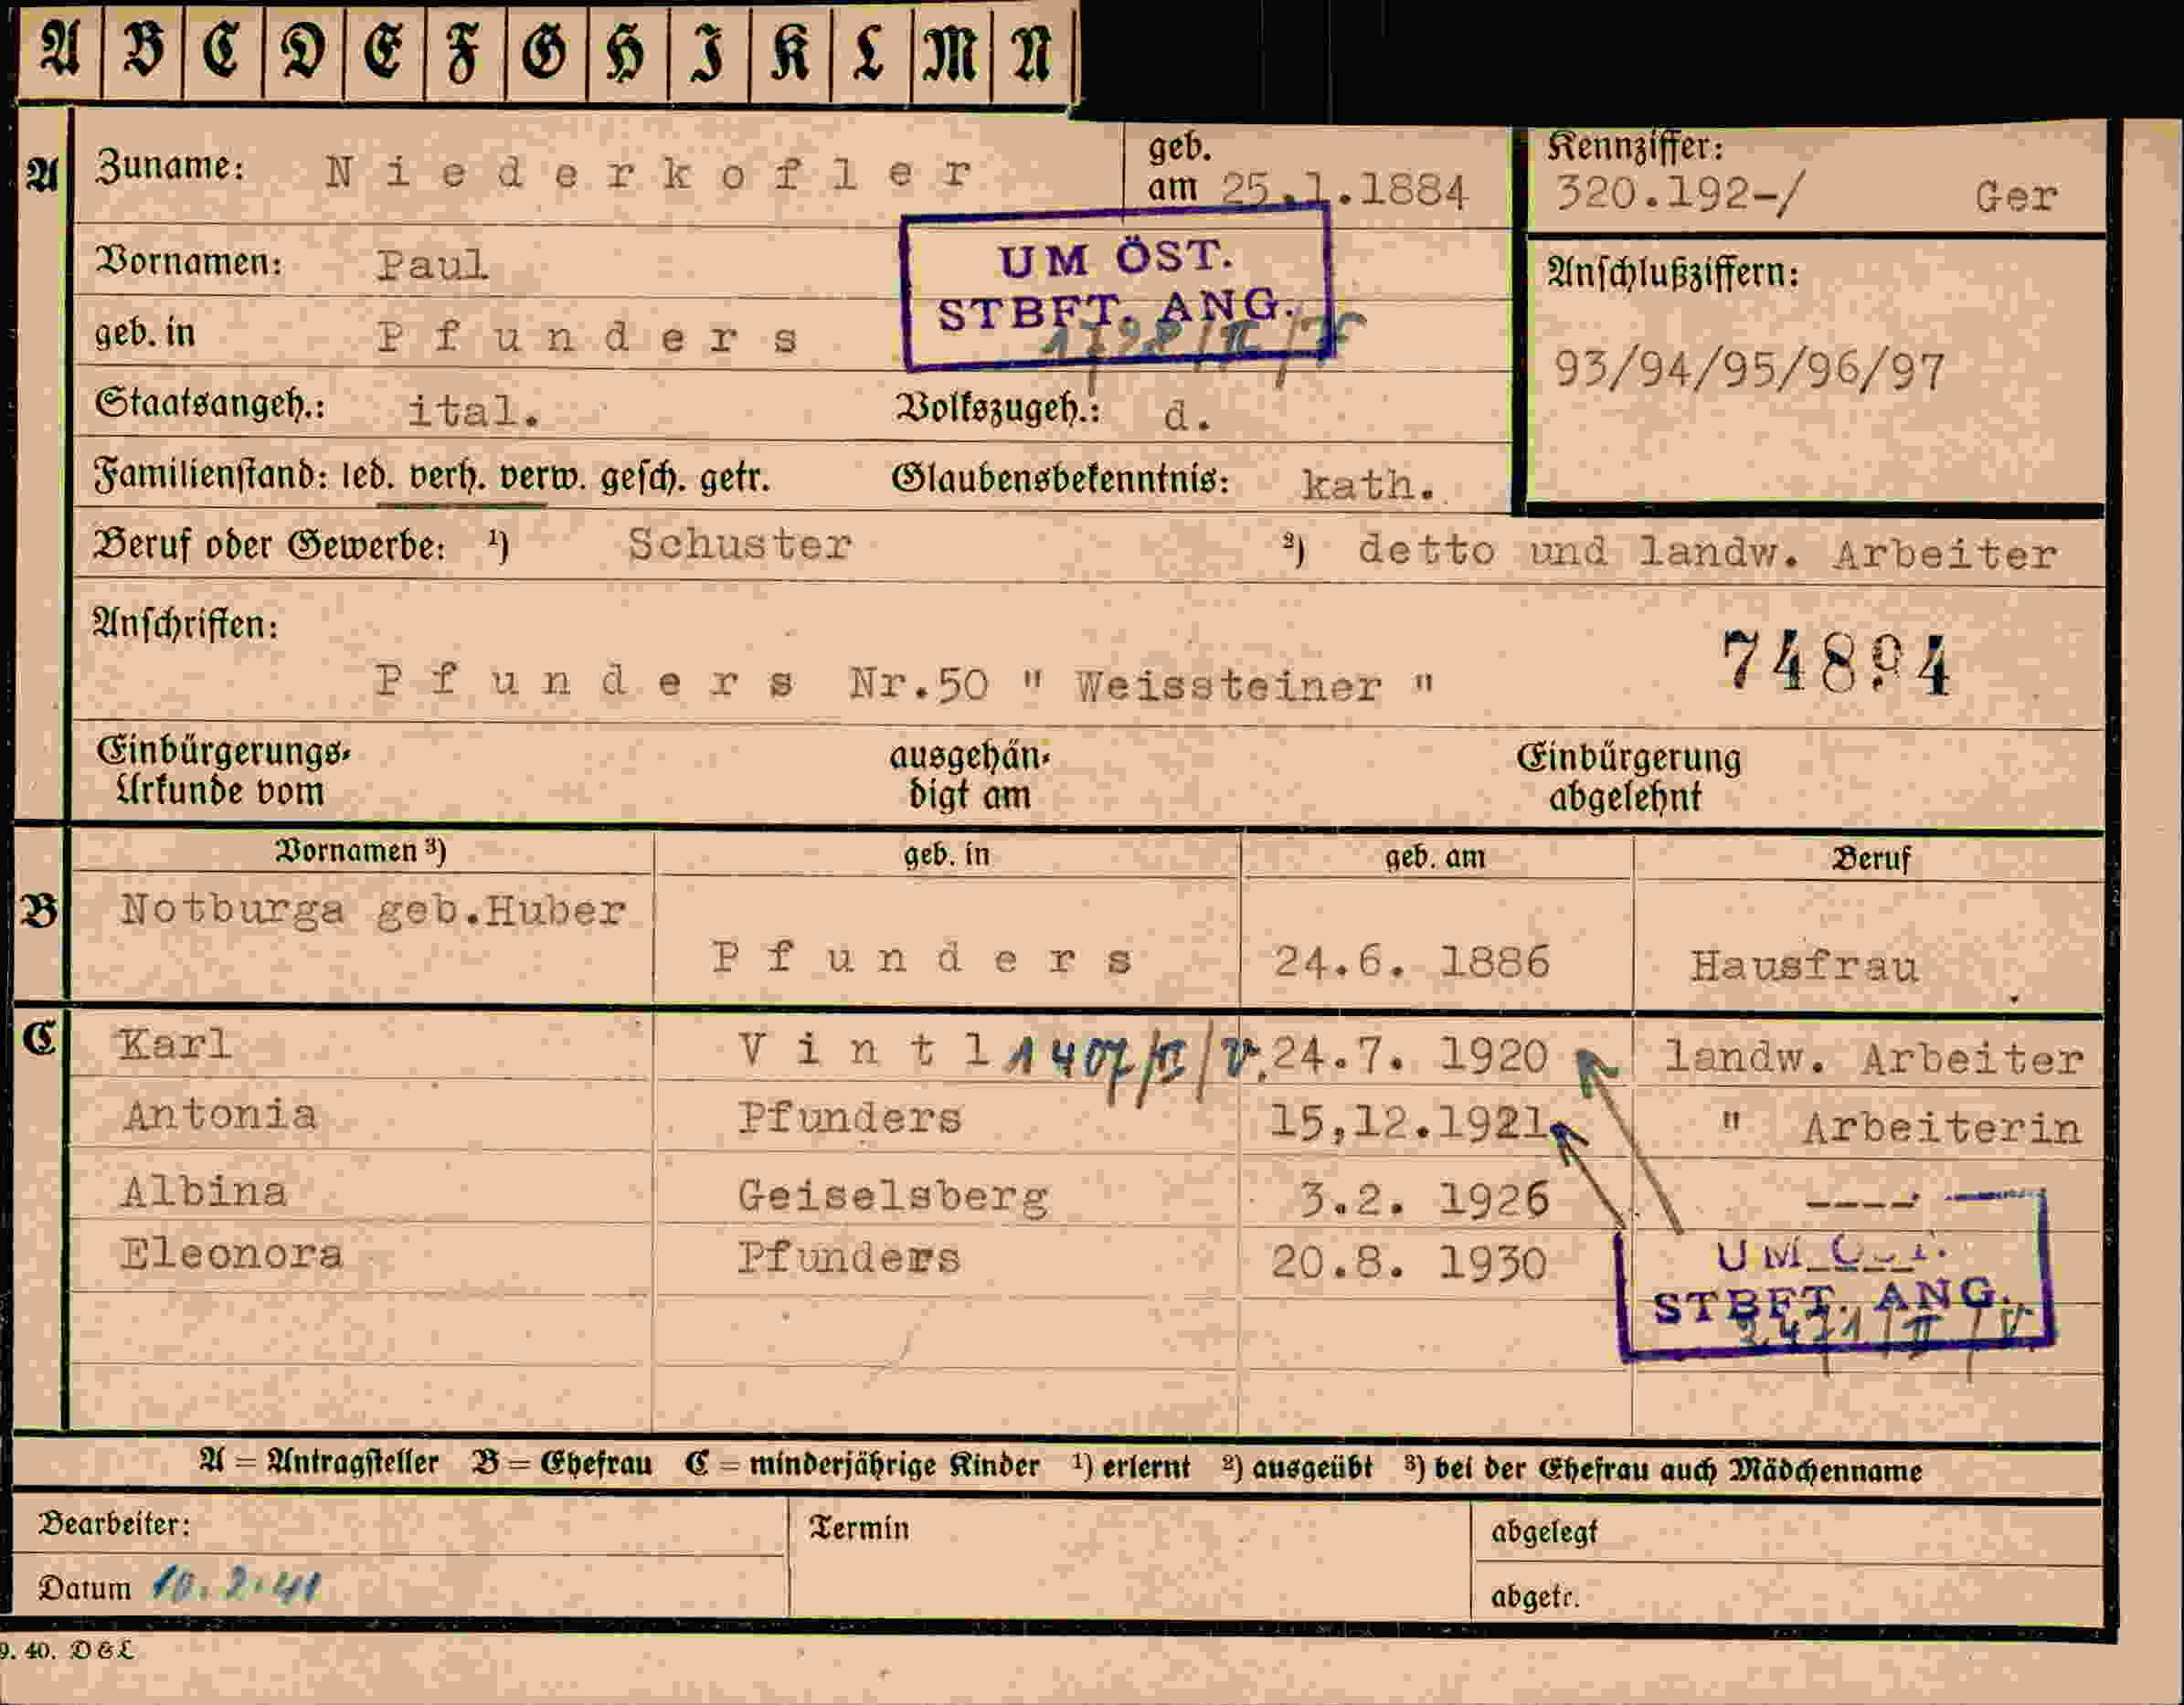 A B C D E F G H I K L M N
A Zuname: Niederkofler geb. am 25.1.1884
Kennziffer: 320.192-/ Ger
Vornamen: Paul
UM ÖST.
STBFT. ANG.
geb. in Pfunders
Anschlußziffern:
93/94/95/96/97
Staatsangeh.: ital. Volkszugeh.: d.
Familienstand: led. verh. verw. gesch. getr. Glaubensbekenntnis: kath.
Beruf oder Gewerbe: ¹) Schuster ²) detto und landw. Arbeiter
Anschriften:
Pfunders Nr.50 " Weissteiner "
74894
Einbürgerungs-Urkunde vom ausgehändigt am Einbürgerung abgelehnt
Vornamen ³) geb. in geb. am Beruf
B Notburga geb.Huber
Pfunders 24.6. 1886 Hausfrau
C Karl Vintl 1407/II/V. 24.7. 1920 landw. Arbeiter
Antonia Pfunders 15,12.1921 " Arbeiterin
Albina Geiselsberg 3.2. 1926 ----
Eleonora Pfunders 20.8. 1930
UM
STBFT. ANG.
A = Antragsteller B = Ehefrau C = minderjährige Kinder ¹) erlernt ²) ausgeübt ³) bei der Ehefrau auch Mädchenname
Bearbeiter: Termin abgelegt
Datum 10.2.41 abgetr.
9. 40. D & L